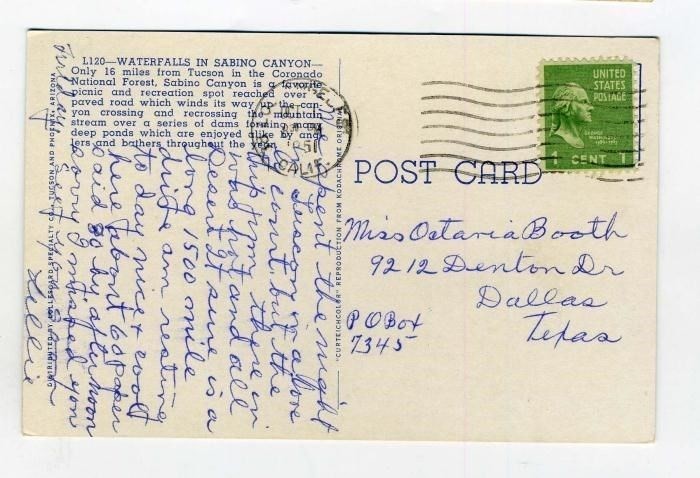 L120—WATERFALLS IN SABINO CANYON—
Only 16 miles from Tucson in the Coronado
National Forest, Sabino Canyon is a favorite
picnic and recreation spot reached over a
paved road which winds its way up the can-
yon crossing and recrossing the mountain
stream over a series of dams forming many
deep ponds which are enjoyed alike by ang-
lers and bathers throughout the year.
DISTRIBUTED BY COLLESCARD SPECIALTY CO., TUCSON AND PHOENIX, ARIZONA
"CURTEICHCOLOR" REPRODUCTION FROM KODACHROME ORIGINAL
POST CARD
UNITED
STATES
POSTAGE
GEORGE
WASHINGTON
1 CENT 1
CALIF.
Miss Octavia Booth
9212 Denton Dr
Dallas
Texas
P O Box
7345
Friday
We spent the night
in Tucson in a
court but the
trip
was hot and all
Desert it sure is a
long 1500 mile
drive am resting
to day nice & cool
here about 60 paper
said 80 by afternoon
sorry I missed you
see you soon
Lillie